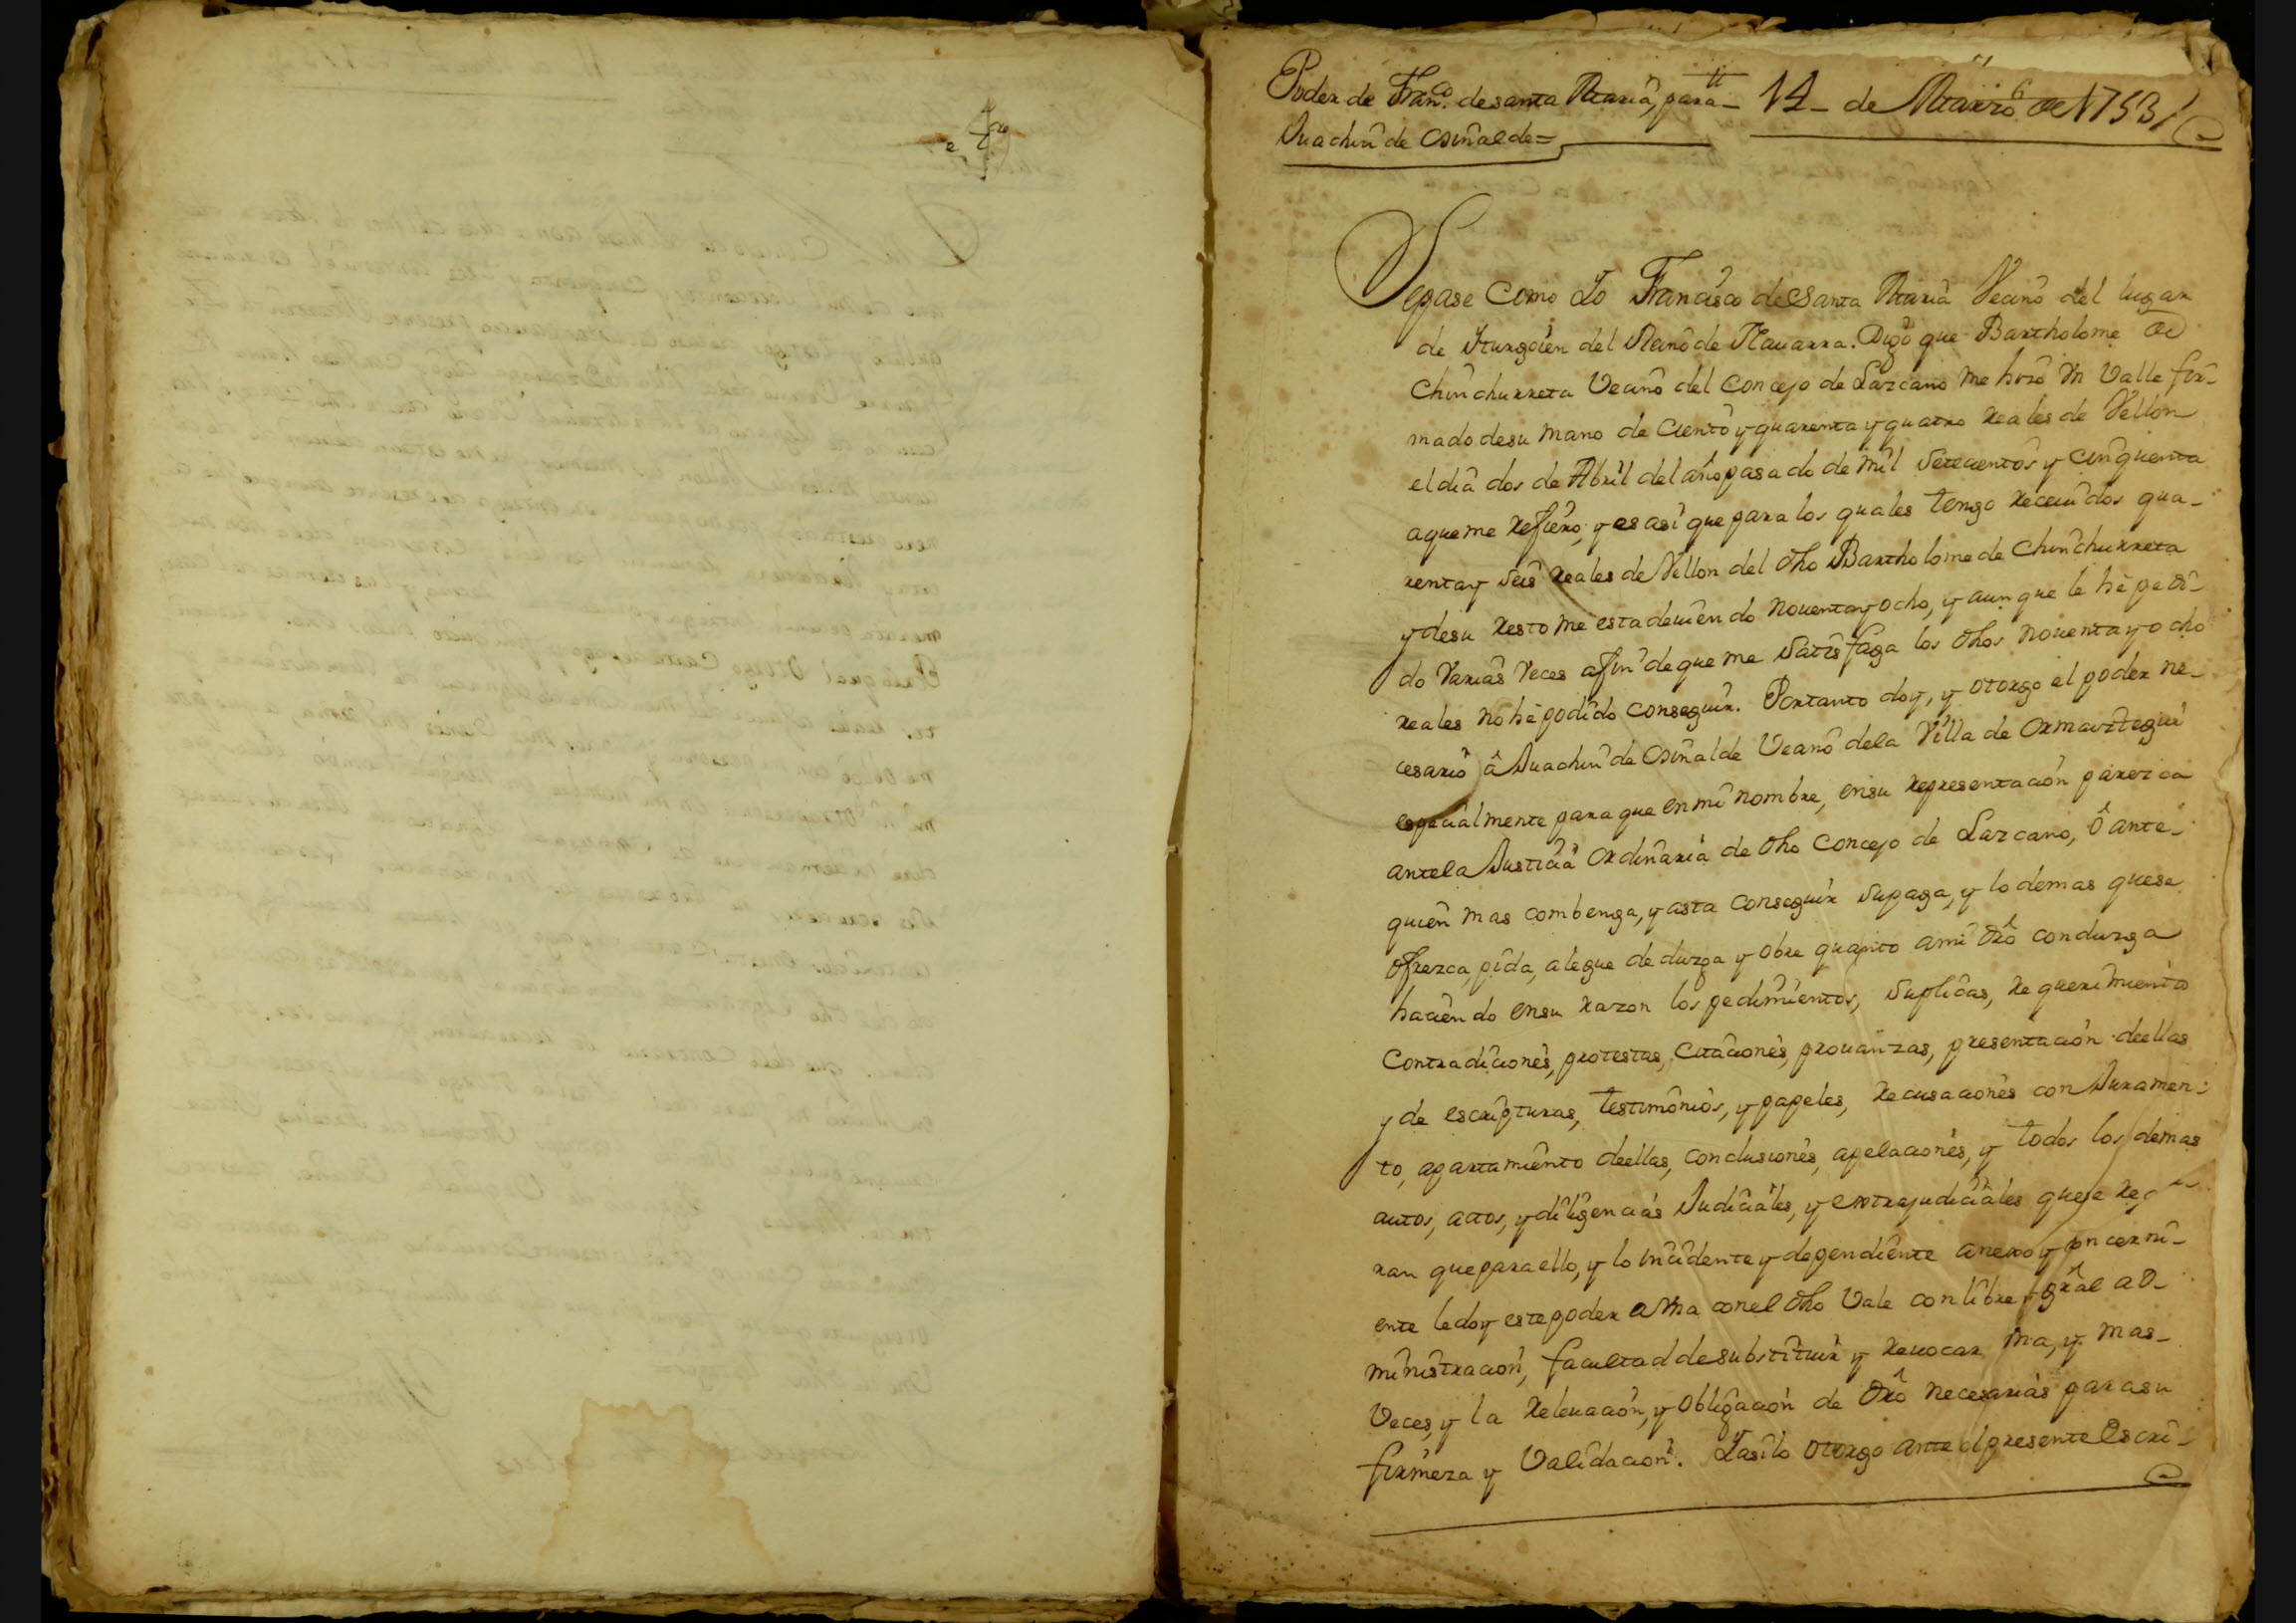 Poder de Fran.co de santa Maria, para 14 de Marzo de 1753
Juachin de Osinalde=
Sepase como Yo Francisco de Santa Maria Vecino del lugar
de Yturgoien del Reino de Nauarra. Digo que Bartholome de
Chinchurreta Vecino del Concejo de Lazcano me hizo Vn Valle fir-
mado de su mano de Ciento y quarenta y quatro reales de Vellon
el dia dos de Abril del año pasado de mil Setecientos y Cinquenta
a que me refiero, y es asi que para los quales tengo receuidos qua-
renta y Seis reales de Vellon del dho Bartholome de Chinchurreta
y de su resto me esta deuiendo nouenta y ocho, y aunque le hè pedi-
do Varias Veces a fin de que me Satisfaga los dhos nouenta y ocho
reales no hè podido conseguir. Por tanto doy, y otorgo el poder ne-
cesario â Juachin de Osinalde Vecino de la Villa de Ormaiztegui
especialmente para que en mi nombre, en su representacion parezca
ante la Justicia ordinaria de dho Concejo de Lazcano, ô ante
quien mas combenga, y asta conseguir Su paga, y lo demas que se
ofrezca, pida, alegue deduzga y obre quanto a mi dro conduzga
haciendo en su razon los pedimientos, Suplicas, requerimiento
Contradiciones, protestas, Citaciones, prouanzas, presentacion de ellas
y de escripturas, testimonios, y papeles, recusaciones con Juramen-
to, apartamiento de ellas, conclusiones, apelaciones, y todos los demas
autos, actos, y diligencias Judiciales, y extrajudiciales que se
ran que para ello, y lo incidente y dependiente anexo y concerni-
ente le doy este poder con el dho Vale con libre y gral ad-
ministracion, facultad de substituir y reuocar Vna, y mas
Veces, y la releuacion, y obligacion de dro necesarias para su
firmeza y Validacion. Y asi lo otorgo ante el presente Escri-